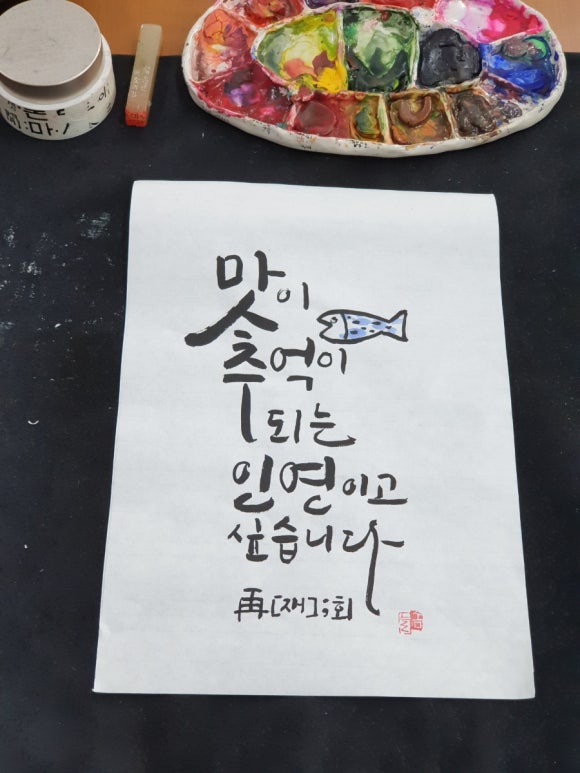 맛이
추억이
되는
인연이고
싶습니다
再[재];회